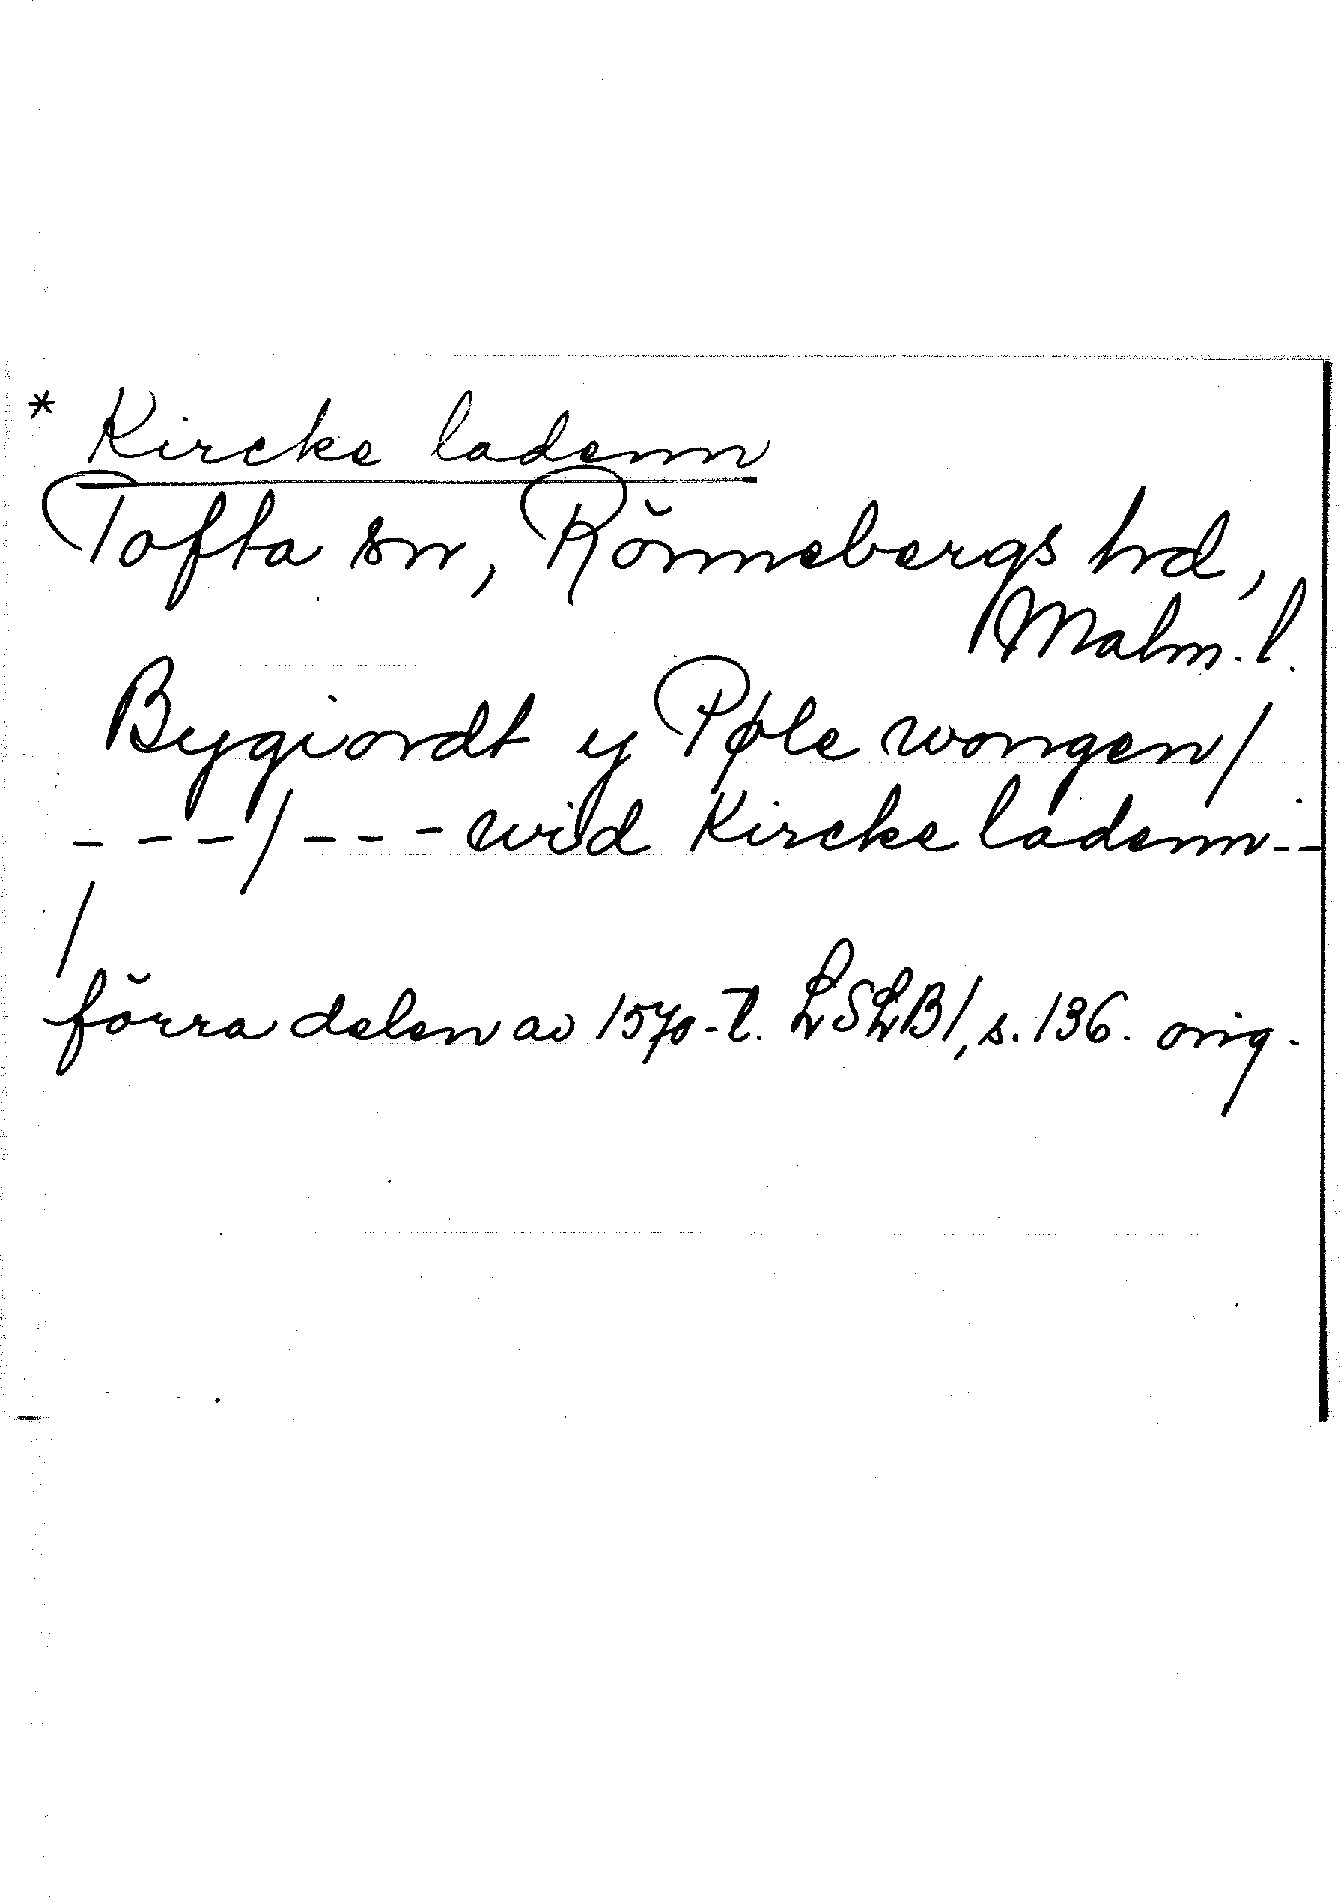 * Kircke ladenn
Tofta sn, Rönnebergs hd,
Malm. l.
Bygiordt y Pøle wongen/
- - - -/- - - wid Kircke ladenn - -
/
förra delen av 1570-t. LSLB1, s. 136. orig.